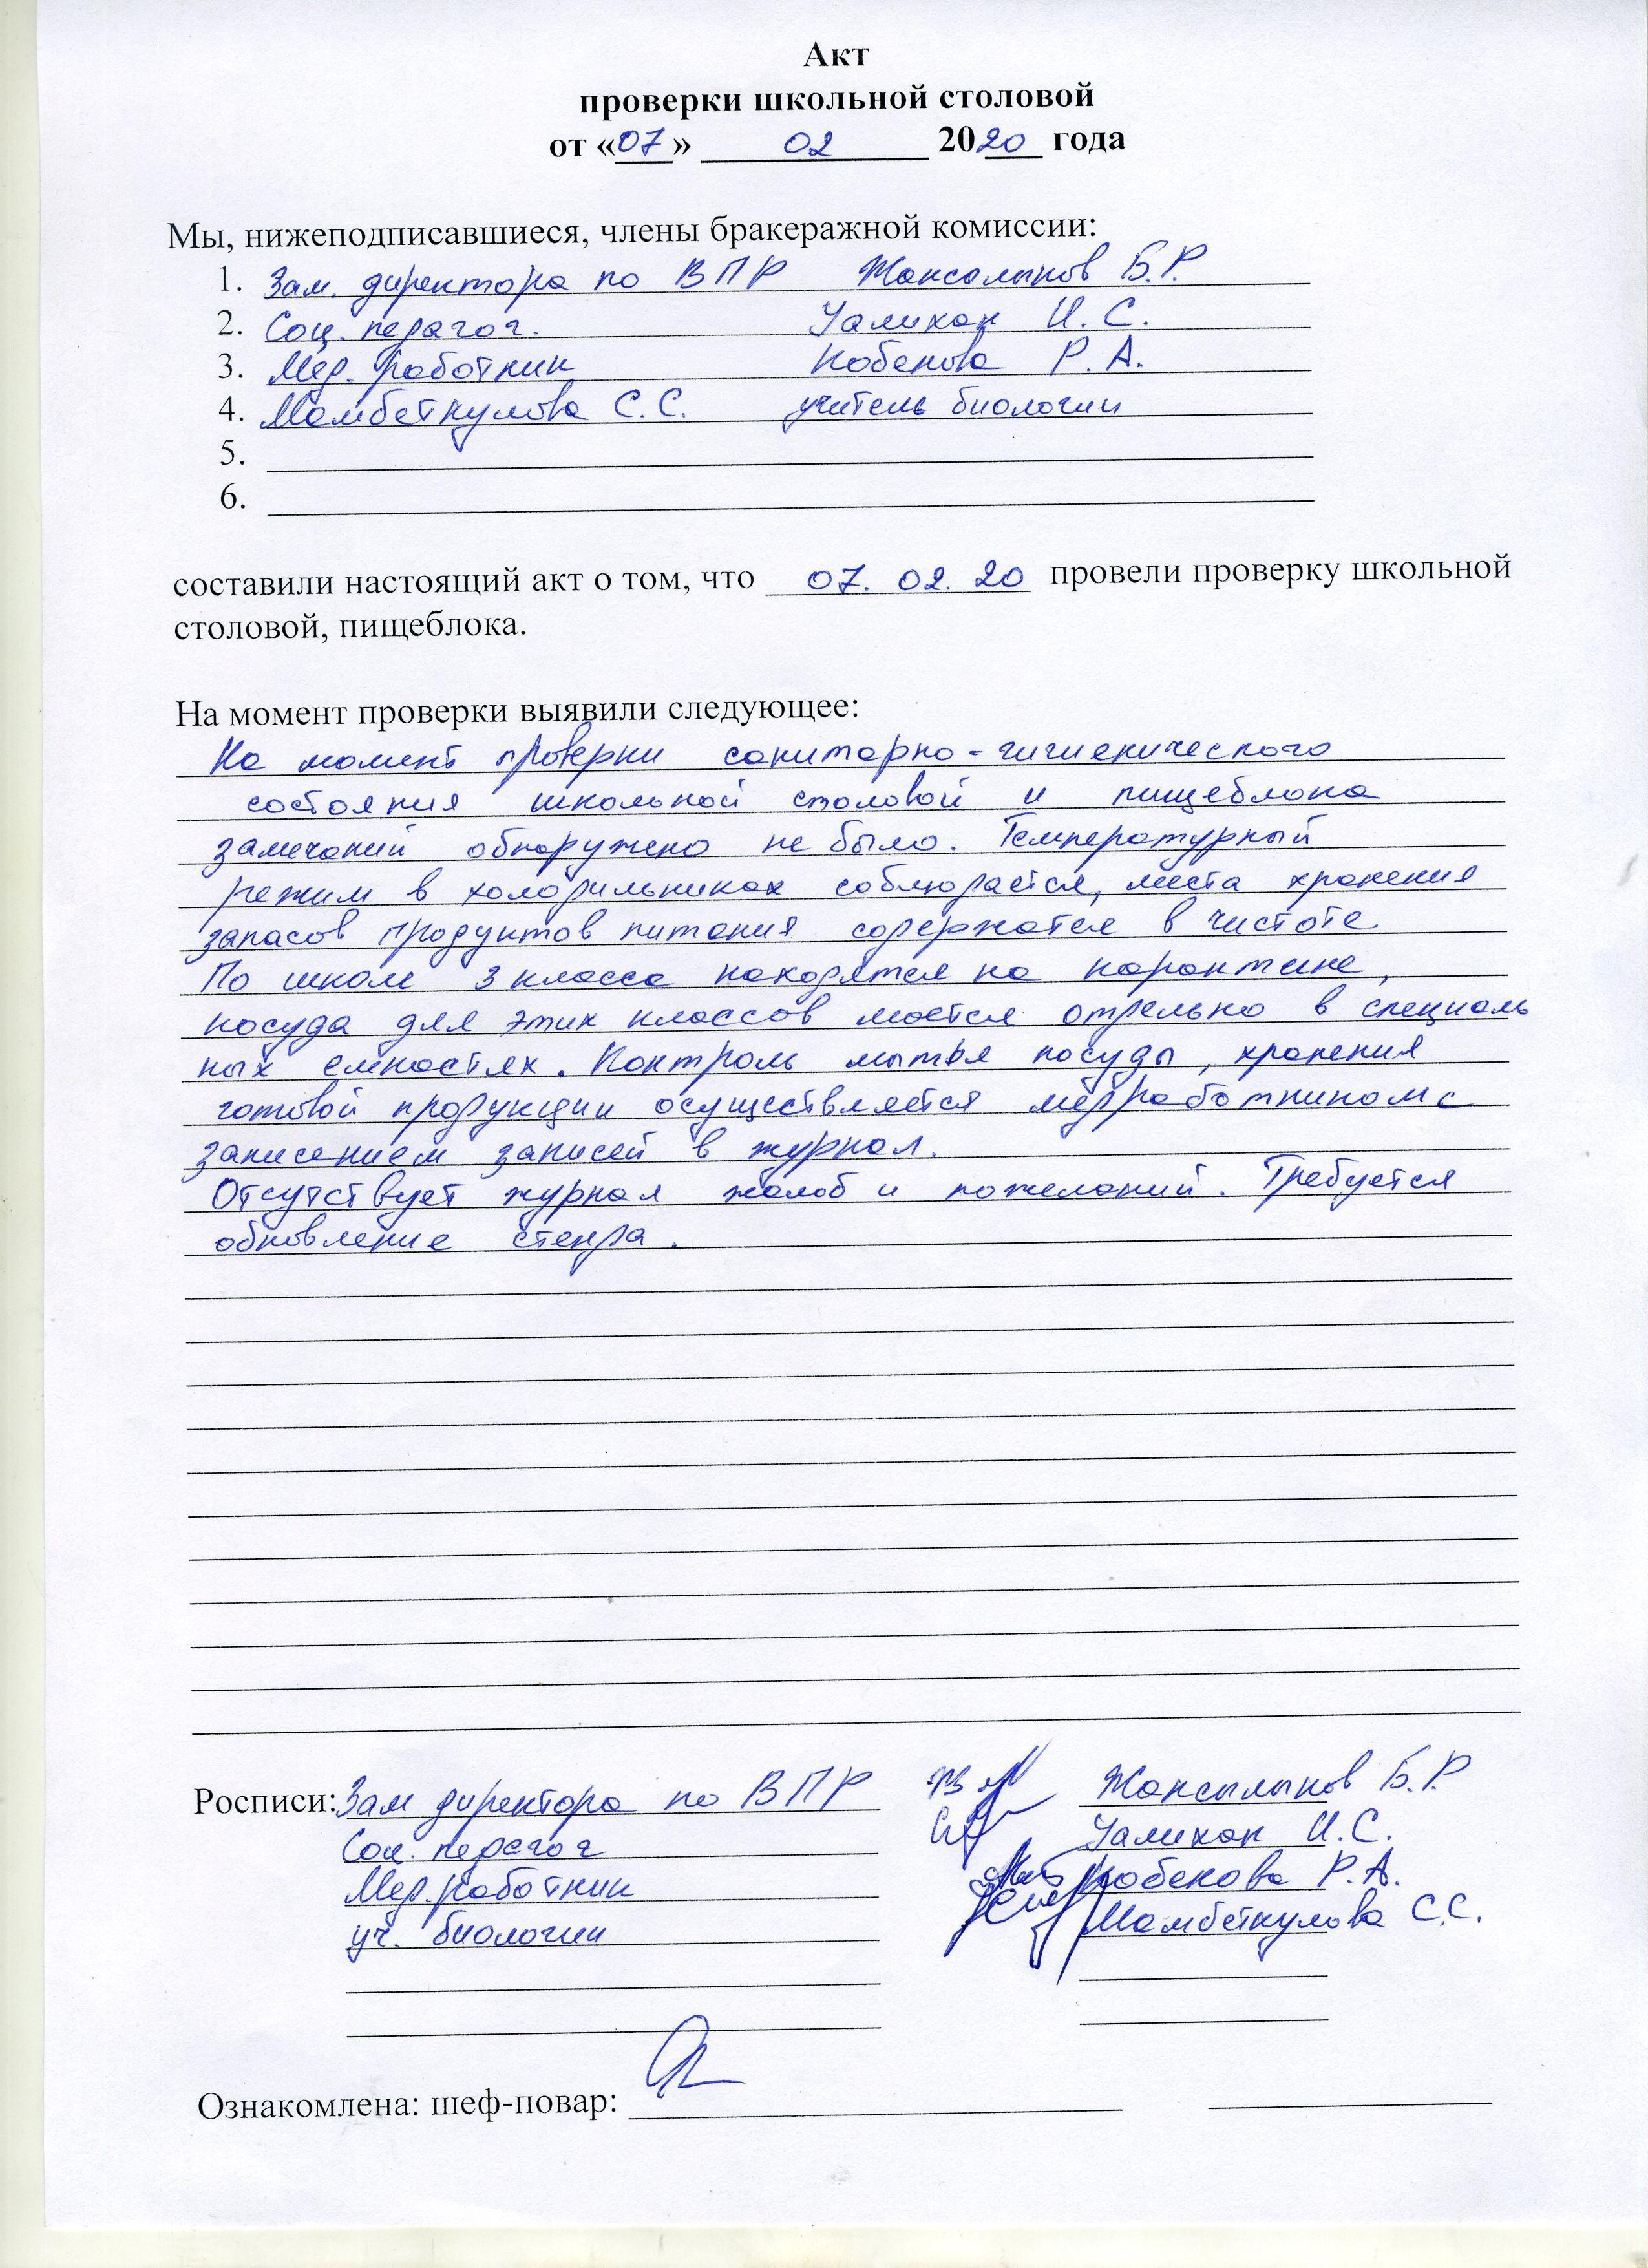 Акт
проверки школьной столовой
от «07» 02 2020 года
Мы, нижеподписавшиеся, члены бракеражной комиссии:
1. Зам. директора по ВПР Жаксалыков Б.Р.
2. Соц. педагог. Уалихан И. С.
3. Мед. работник Кобекова Р. А.
4. Мамбеткулова С.С. учитель биологии
5.
6.
составили настоящий акт о том, что 07. 02. 20 провели проверку школьной
столовой, пищеблока.
На момент проверки выявили следующее:
На момент проверки санитарно-гигиенического
состояния школьной столовой и пищеблока
замечаний обнаружено не было. Температурный
режим в холодильниках соблюдается, места хранения
запасов продуктов питания содержатся в чистоте.
По школе 3 класса находятся на карантине,
посуда для этих классов моется отдельно в специаль
ных емкостях. Контроль мытья посуды, хранения
готовой продукции осуществляется медработником с
занесением записей в журнал.
Отсутствует журнал жалоб и пожеланий. Требуется
обновление стенда.
Росписи: Зам директора по ВПР Жаксылыков Б.Р.
Соц. педагог Уалихан И.С.
Мед. работник Кобекова Р.А.
уч. биологии Мамбеткулова С.С.
Ознакомлена: шеф-повар: